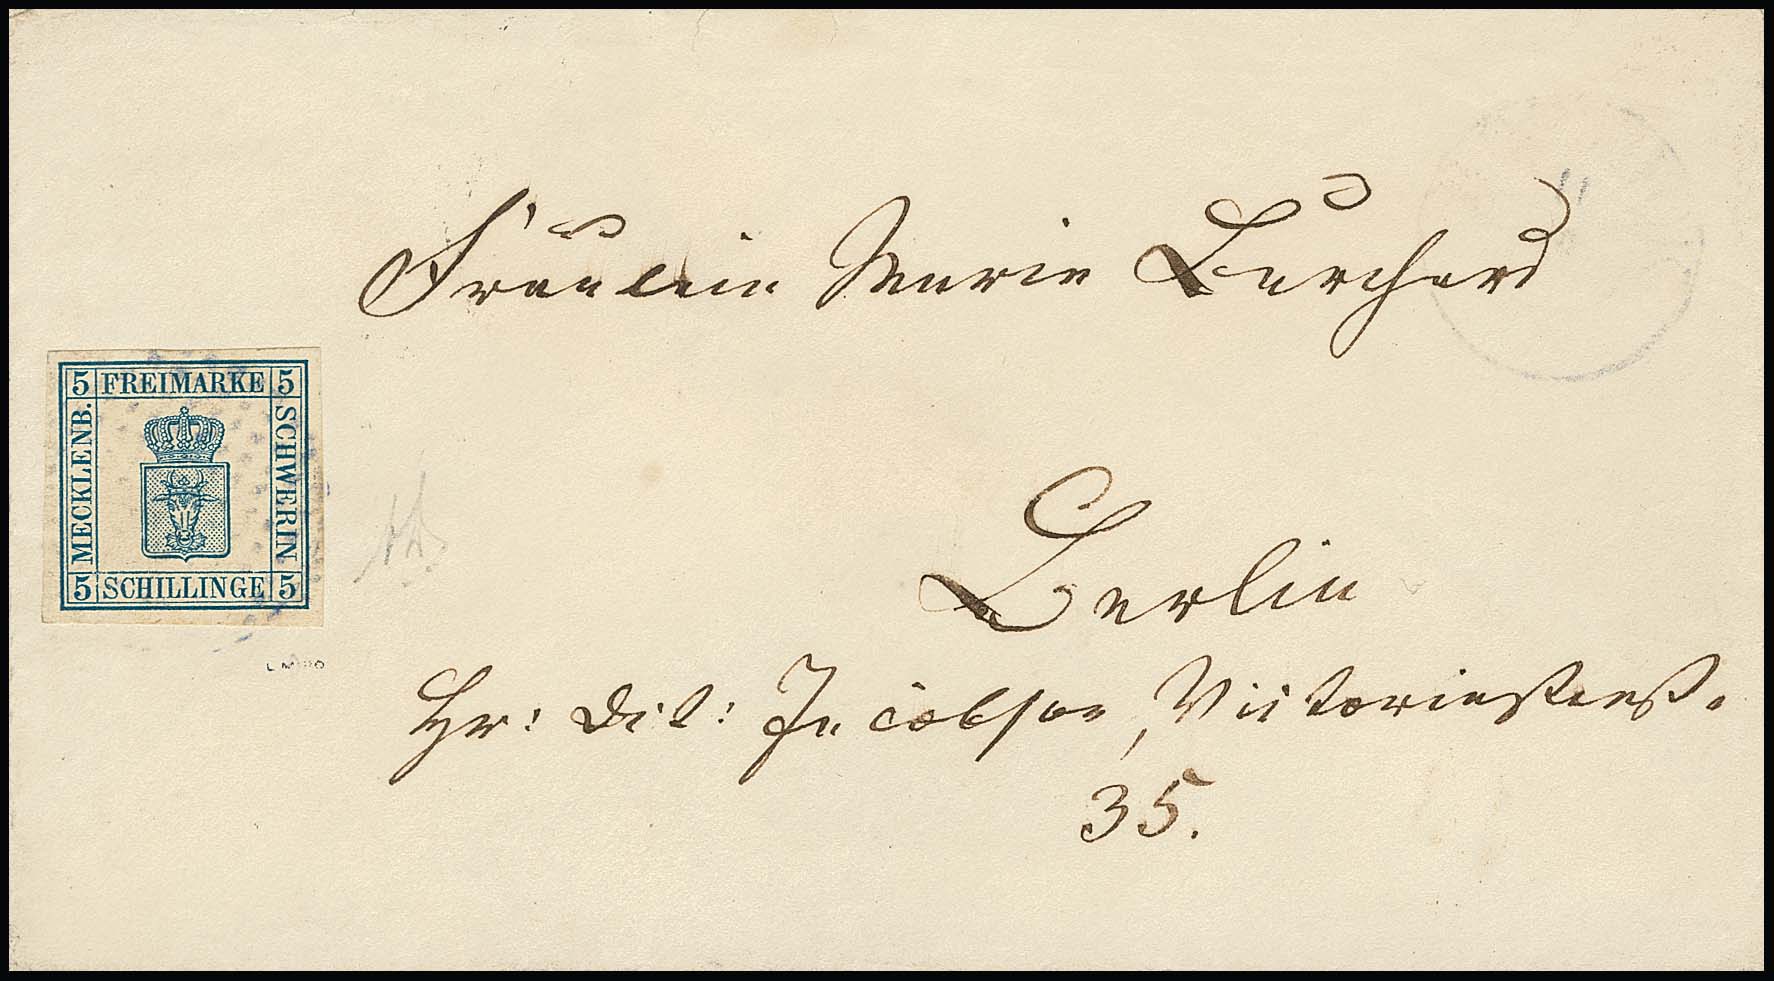 Fräulein Marie Burchard
5 FREIMARKE 5
MECKLENB.
SCHWERIN
5 SCHILLINGE 5
Berlin
Hr: Dir: Jacobson, Victoriastraß.
35.